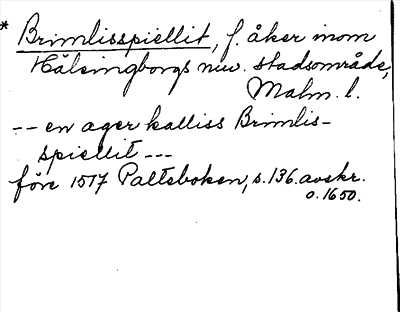 * Brimlisspiellit, f. åker inom
Hälsingborgs nuv. stadsområde,
Malm. l.
-- en ager kalliss Brimlis-
spiellit ---
före 1517 Paltsboken, s. 136. avskr.
o. 1650.